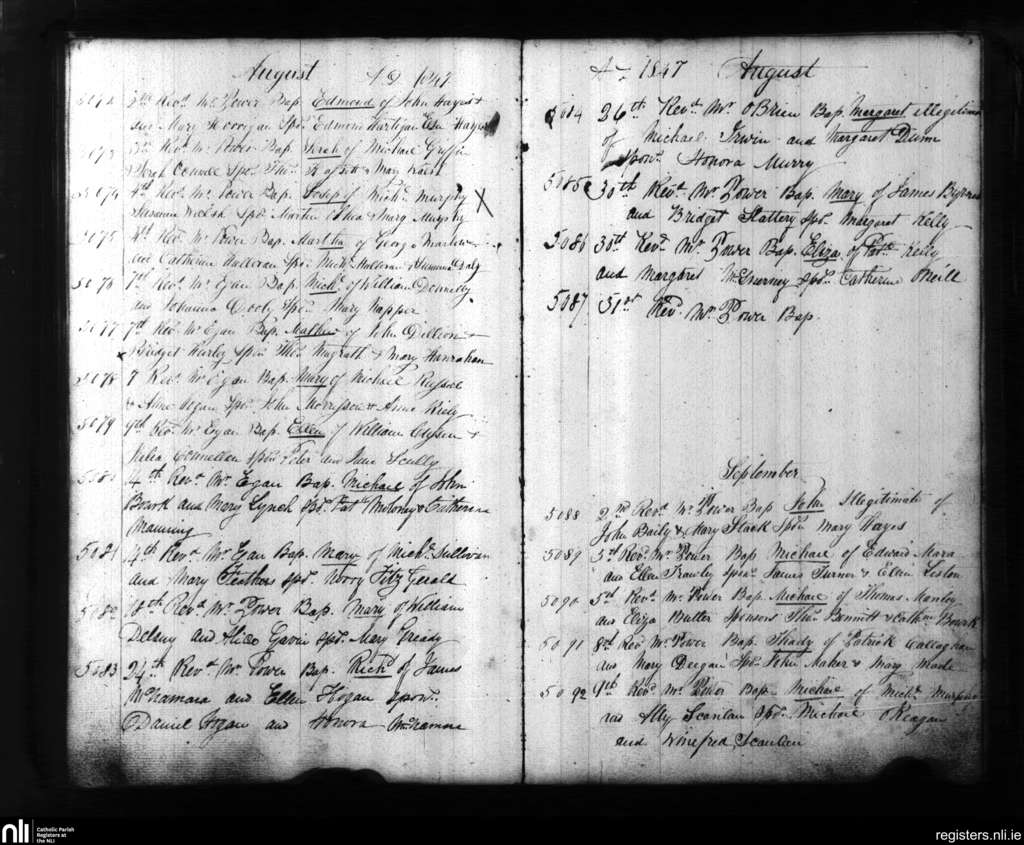 August A D 1847
3rd Revd. Mr. Power Bap. Edmond of John Hayes &
Mary Horrigan Spo. Edmond Hartigan
5073 Revd. Mr. Power Bap. Sarah of Michael Griffin
& Sarah Spo. Thos. & Mary
5074 4th Revd. Mr. Power Bap. Joseph of Michl. Murphy X
Susanna Welsh Spo. Martin Shea & Marg Murphy
5075 4th Revd. Mr. Power Bap. Martha of George
and Catherine Spo. Michl. Daly
5076 7th Revd. Mr. Egan Bap. Michl. of William Donnelly
and Johanna Spo. Mary Napper
5077 7th Revd. Mr. Egan Bap. Mathew of John Dillon &
Bridget Hurley Spon Thos. Magrath & Mary Hanrahan
5078 7 Revd. Mr. Egan Bap. Mary of Michael Russel
& Anne Hogan Spo. John Morrisson & Anne Kiely
5079 9th Revd. Mr. Egan Bap. Ellen of William &
Connellan Spon Peter and Jane Scully
5080 14th Revd. Mr. Egan Bap. Michael of John
Bourk and Mary Lynch Spo. Patt Moloney & Catherine
Manning
5081 14th Revd. Mr. Egan Bap. Mary of Michl. Sullivan
and Mary Spo. Fitz Gerald
5082 18th Revd. Mr. Power Bap. Mary of William
Delany and Alice Gavin Spo. Mary Gready
5083 24th Revd. Mr. Power Bap. Richd. of James
McNamara and Ellen Hogan Spon.
Daniel Hogan and Honora McNamara
A D 1847 August
5084 26th Revd. Mr. OBrien Bap. Margaret illegitimate
of Michael Irwin and Margaret Dunn
Spon. Honora Murry
5085 30th Revd. Mr. Power Bap. Mary of James Byrnes
and Bridget Slattery Spo. Margaret Kelly
5086 30th Revd. Mr. Power Bap. Eliza of Patt. Kelly
and Margaret McInerney Spo. Catherine ONeill
5087 31st Revd. Mr. Power Bap.
September
5088 2nd Revd. Mr. Power Bap John Illegitimate of
John Baily & Mary Slack Spon Mary Hayes
5089 5th Revd. Mr. Power Bap Michael of Edward Mara
and Ellen Frawley Spon. James Turner & Ellen Liston
5090 5th Revd. Mr. Power Bap. Michael of Thomas Manley
and Eliza Butler Sponsors Thos. Bennett & Cathne Bourk
5091 8th Revd Mr. Power Bap. Thady of Patrick Callaghan
and Mary Deegan Spo. John Maher & Mary Meade
5092 9th Revd. Mr. Power Bap Michael of Michl.
Ally Scanlan Spo. Michael OKeagan
and Winefred Scanlan
nli Catholic Parish
Registers at
the NLI
registers.nli.ie